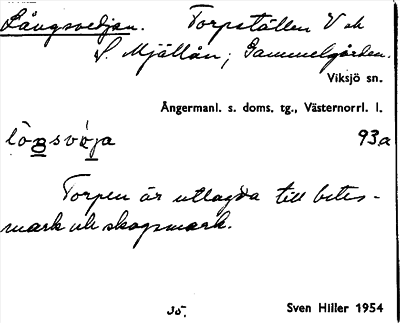 Långsvedjan. Torpställen V ok
S. Mjällån; Gammelgården.
Viksjö sn.
Ångermanl. s. doms. tg., Västernorrl. l.
93a
Torpen är utlagda till betes-
mark och skogsmark.
35.
Sven Hiller 1954